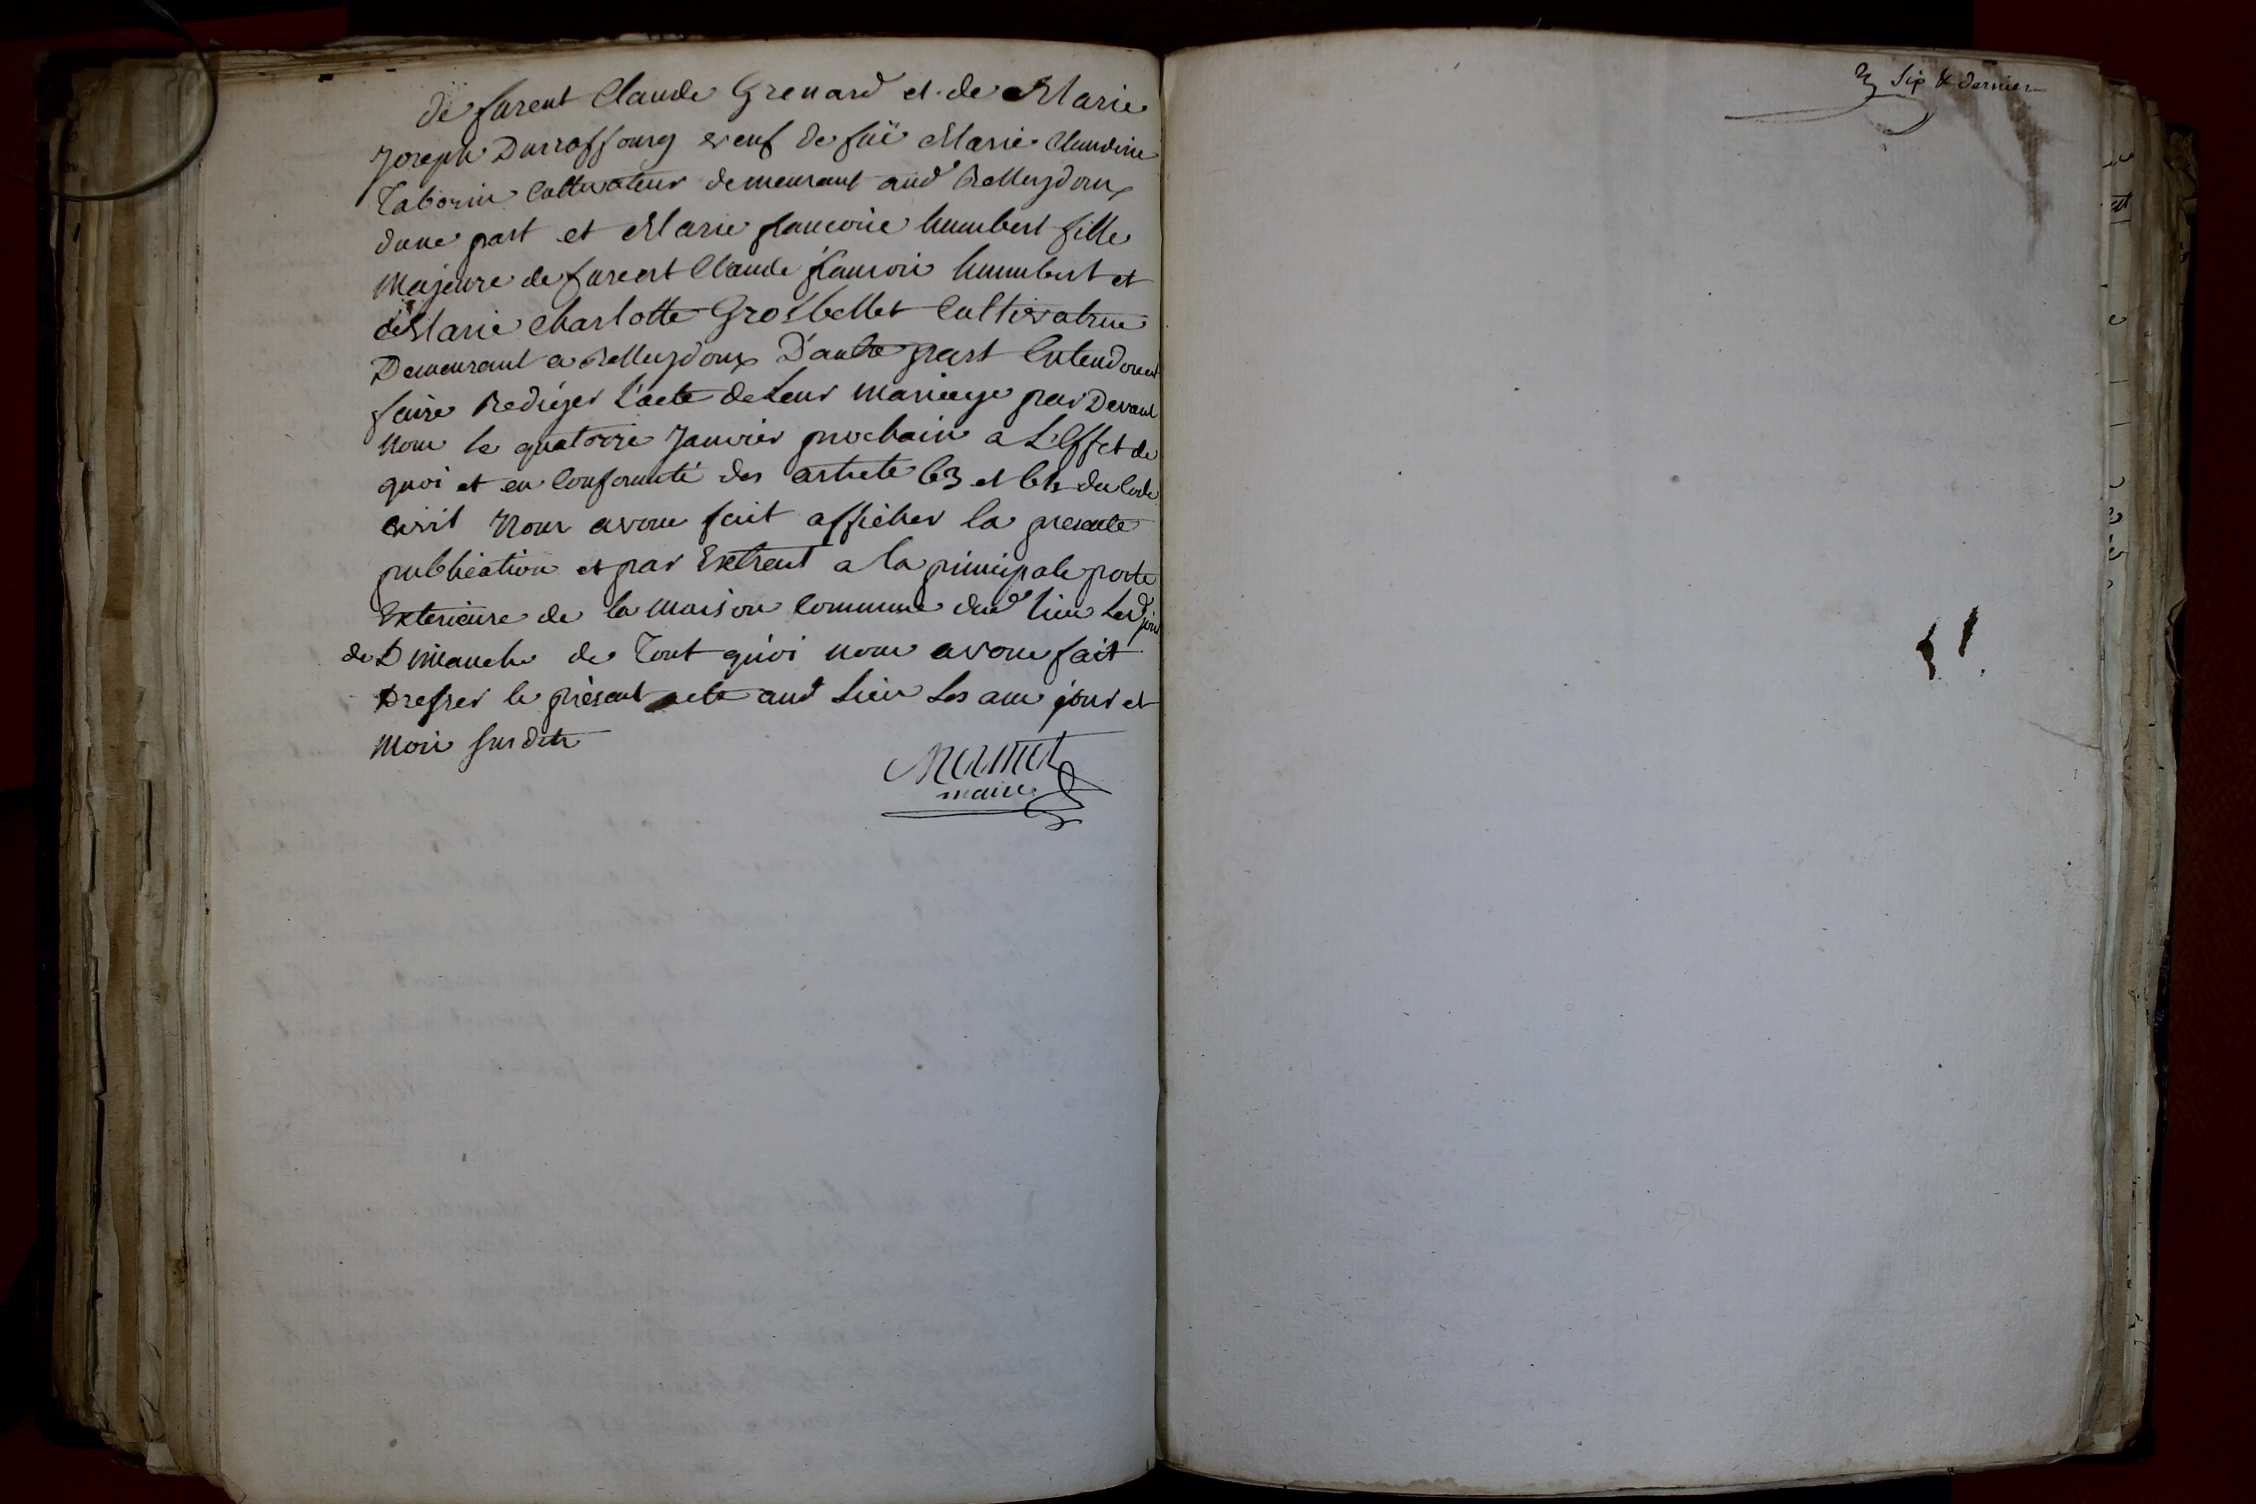 de furent Claude Grenard et de Marie
Joseph Durraffourg veuf de fui Marie Claudine
Taborin Cultivateur demeurant aud Belleydoux
dune part et Marie francoise humbert fille
Majeure de furent Claude francois humbert et
de Marie Charlotte Grosbellet Cultivatrice
Demeurant a Belleydoux D'autre part Entendoient
faire Rediger L'acte de Leur Mariage par Devant
Nous le quatorze Janvier prochain a L'Effet de
quoi et en Conformité des article 63 et 64 du Code
civil Nous avons fait afficher la presente
publication et par Extrait a la principale porte
Exterieure de la Maison Commune dud lieu Led jour
de Dimanche de Tout quoi nous avons fait
Dresser le présent acte aud Lieu Les an jour et
Mois susdits
Mermet
maire
Six & dernier